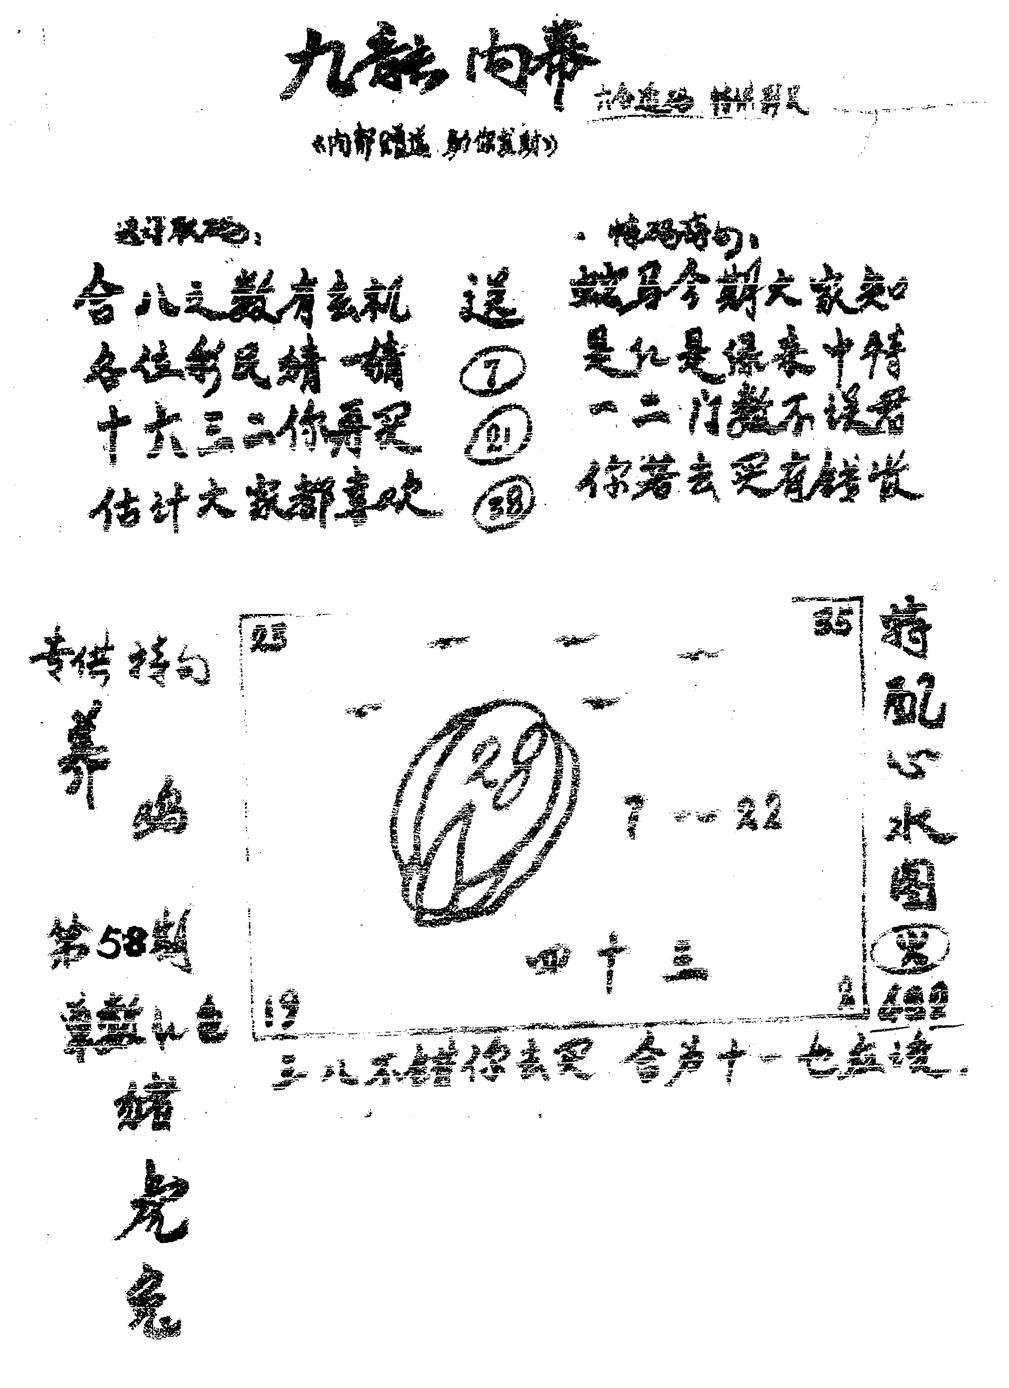 九龙内幕
《内部赠送 助你发财》
特码诗句:
合八之数有玄机 送 蛇马今期大家知
各位彩民猜一猜 7 是红是绿来中特
十六三二你再买 21 一二门数不误君
估计大家都喜欢 38 你若去买有错收
专供特句
养
鸡
第58期
单数
猪
虎
兔
23
35
28
7--22
四十三
19
2
特
配
心
水
图
三八不错你去买 合为十一也应该.